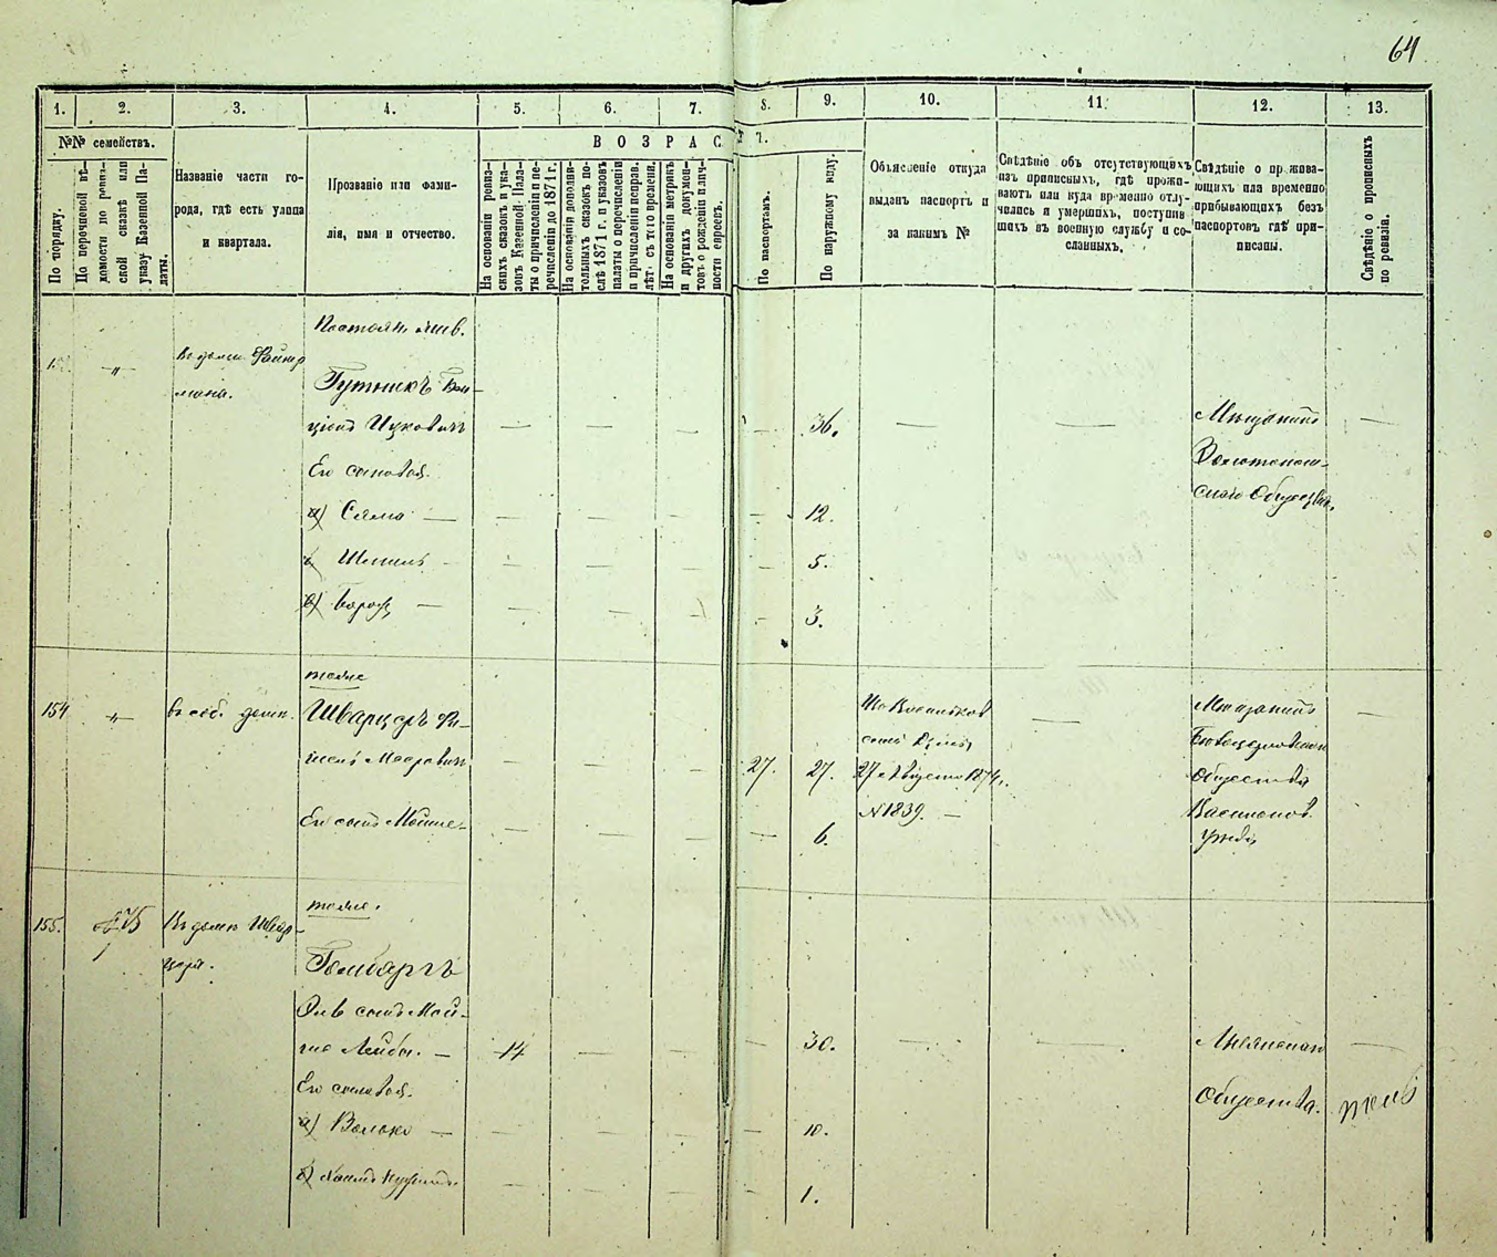 64
1. 2. 3. 4. 5. 6. 7. 8. 9. 10. 11. 12. 13.
№№ семействъ.
По порядку.
По перечневой вѣ-
домости по ревиз-
ской сказкѣ или
указу Казенной Па-
латы.
Названіе части го-
рода, гдѣ есть улица
и квартала.
Прозваніе или фами-
лія, имя и отчество.
ВОЗРАСТЪ.
На основаніи ревиз-
скихъ сказокъ и ука-
зовъ Казенной Пала-
ты о причисленіи и пе-
речисленіи до 1871 г.
На основаніи дополни-
тельныхъ сказокъ по-
слѣ 1871 г. и указовъ
палаты о перечисленіи
и причисленіи исправ.
лѣтъ съ того времени.
На основаніи метрикъ
и другихъ докумен-
товъ о рожденіи и лич-
ности евреевъ.
По паспортамъ.
По наружному виду.
Объясненіе откуда
выданъ паспортъ и
за какимъ №
Свѣдѣніе объ отсутствующихъ
изъ приписныхъ, гдѣ прожи-
ваютъ или куда временно отлу-
чились и умершихъ, поступив-
шихъ въ военную службу и со-
сланныхъ.
Свѣдѣніе о прожива-
ющихъ или временно
прибывающихъ безъ
паспортовъ гдѣ при-
писаны.
Свѣдѣніе о прописныхъ
по ревизіи.
Въ домѣ Файнер
мана.
Гутникъ
Ицковичъ — — — — 36. — — Мѣщанинъ —
Золотонош-
скаго Общества.
Его сыновья.
а) Сяма — — — — — 12.
б) Шмиль — — — — — 5.
в) Борохъ — — — — 3.
тоже
154 „ въ соб. домѣ. Шварцеръ Фи-
шель Мееровичъ — — — 27. 27.
Изъ Васильков
ской Думы
27 Августа 1874 г.
№ 1839. —
Мѣщанинъ —
Бѣлоцерковскаго
Общества
Васильков.
уѣзда
Его сынъ Мойше — — — — — 6.
тоже.
155. 75 Въ домѣ Швар-
цера.
Гомбаргъ
сынъ Мой-
ше Лейба. — 14 — — — 30. — —
Общества.
Его сыновья.
а) Волько — — — — — 10.
б) Хаимъ — — — — 1.